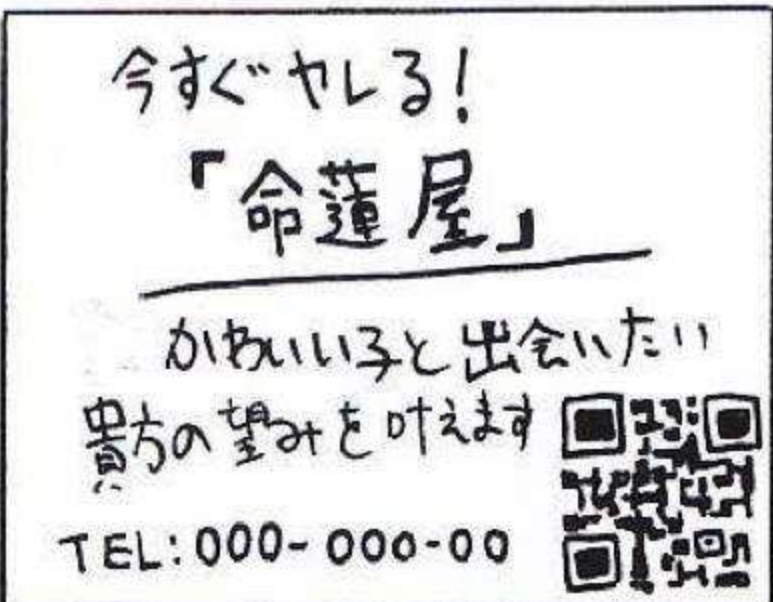 今すぐヤレる!
「命蓮屋」
かわいい子と出会いたい
貴方の望みを叶えます
TEL:000-000-00